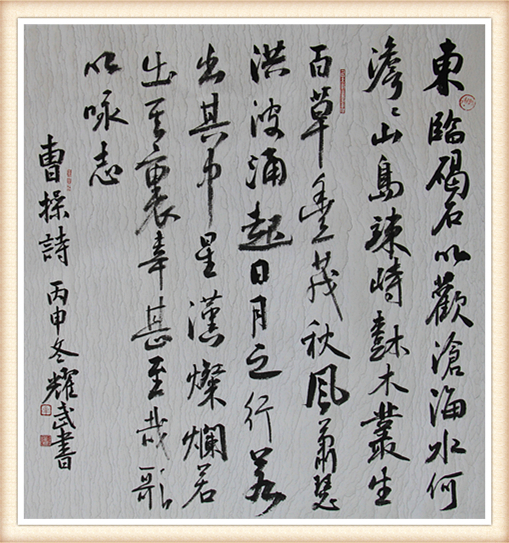 東臨碣石以歡滄海水何
澹〻山島竦峙樹木叢生
百草豐茂秋風蕭瑟
洪波涌起日月之行若
出其中星漢燦爛若
出其裏幸甚至哉歌
以咏志
曹操詩 丙申冬耀武書